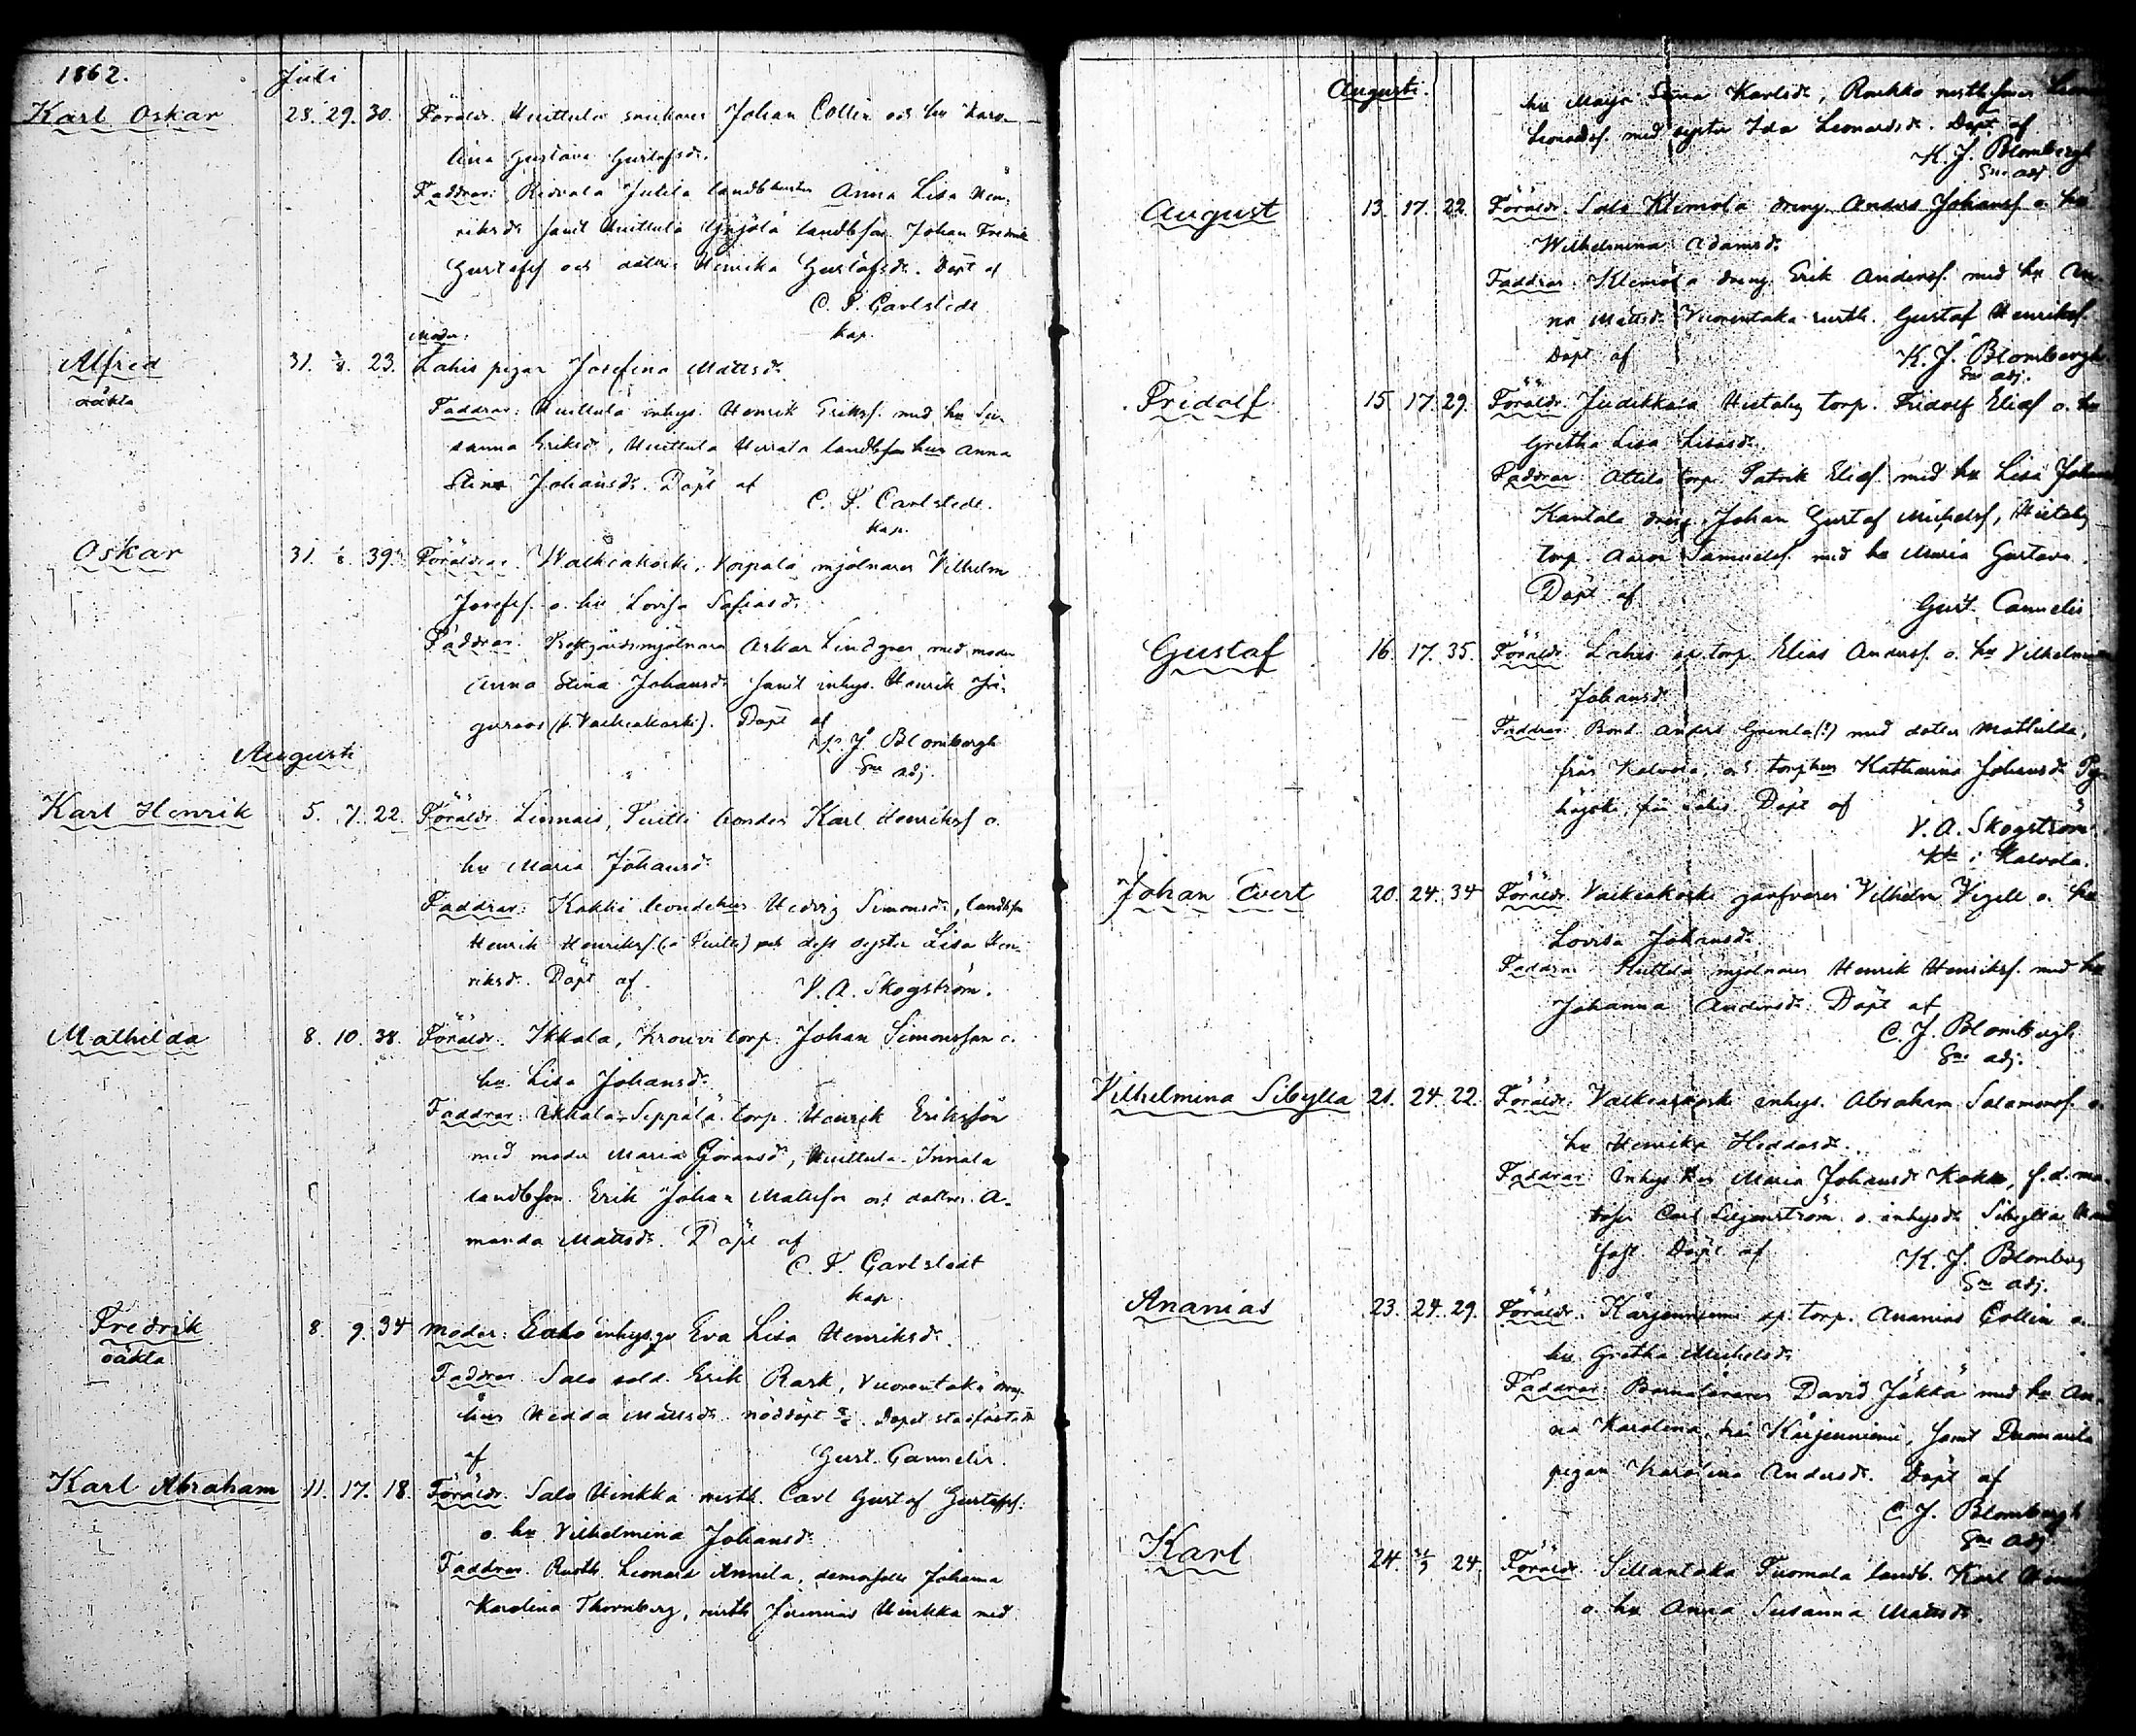 1862. Juli
Karl Oskar 28. 29. 30. Föräldr. Huittula snickaren Johan Collin och hu Karo-
lina Gustava Gustafsdr.
Faddrar: Ridvala Jutila landb Anna Lisa Hen-
riksdr samt Huittula landbson Johan Fredrik
Gustafss och dottren Henrika Gustafsdr. Döpt af
C. F. Carlstedt
kap.
Moder:
Alfred 31. 23. Lahis pigan Josefina Mattsdr
oäkta
Faddrar: Huittula inhys. Henrik Erikss. med hu Su-
sanna Eriksdr, Huittula landbsons hus Anna
Stina Johansdr. Döpt af
C. F. Carlstedt.
kap.
Oskar 31. 39. Föräldrar. Walkiakoski, mjölnaren Vilhelm
Josefss. o. hu Lovisa
Faddrar. mjölnaren Oskar Lindgren med moder
Anna Stina Johansdr samt inhys. Henrik
(f. Valkiakoski). Döpt af
K. J. Blombergh
Sne adj.
Augusti
Karl Henrik 5. 7. 22. Föräldr. Linnais, bonden Karl Henrikss o.
hu Maria Johansdr
Faddrar: Kokki bondehus Hedvig Simonsdr, landbson
Henrik Henrikss. och dess syster Lisa Hen-
riksdr. Döpt af
V. A. Skogström.
Mathilda 8. 10. 38. Föräldr. Ikkala, Krouvi torp. Johan Simonsson o.
hu. Lisa Johansdr
Faddrar: Ikkala-Seppälä torp. Henrik Eriksson
med moder Maria Göransdr, Huittula-Innala
landbson Erik Johan Mattsson och dottren A-
manda Mattsdr. Döpt af
C. F. Carlstedt
kap.
Fredrik 8. 9. 34 Moder: inhys. Eva Lisa Henriksdr.
oäkta
Faddrar Salo sold. Erik Rask, Vuorentaka dreng
hus Hedda Mattsdr. nöddöpt. Dopet stadfästadt
af Gust. Cannelin.
Karl Abraham 11. 17. 18. Föräldr. Salo Hinkka rusth. Carl Gustaf Gustafss.
o. hu Vilhelmina Johansdr
Faddrar. Rusth. Leonard Annila, demoiselle Johanna
Karolina Thornberg, rusth. Jeremias Hinkka med
Augusti.
hu Maja Stina Karlsdr, rusth.sonen
Leonardss. med syster Ida Leonardsdr. Döpt af
K. J. Blombergh
Sne adj
August 13. 17. 22. Föräldr. Salo Klemola dreng Anders Johanss o. hu
Wilhelmina Adamsdr
Faddrar. Klemola dreng Erik Anderss. med hu An-
na Mattsdr. Vuorentaka rusth. Gustaf Henrikss.
Döpt af K. J. Blombergh
Sne adj.
Fridolf 15. 17. 29. Föräldr. Judikkala torp. Fridolf Eliass o. hu
Gretha Lisa
Faddrar Attila torp. Patrik Eliass. med hu Lisa
Kantala dreng Johan Gustaf Michelss,
torp. Aaron Samuelss. med hu Maria Gustava.
Döpt af Gust. Cannelin
Gustaf 16. 17. 35. Föräldr. Lahis torp. Elias Anderss. o. hu Vilhelmina
Johansdr
Faddrar Bond. Anders (?) med dotter Mathilda,
från Kalvola, och torphus Katharina Johansdr
från Lahis. Döpt af
V. A. Skogström
i Kalvola.
Johan Evert 20. 24. 34 Föräldr. Valkeakoski garfvaren Vilhelm Vigell o. hu
Lovisa Johansdr
Faddrar mjölnaren Henrik Henrikss. med hu
Johanna Andersdr. Döpt af
C. J. Blombergh
Sne adj.
Vilhelmina Sibylla 21. 24. 22. Föräldr. Valkeakoski inhys. Abraham Salomonss. o.
hu Henrika
Faddrar: inhys hus Maria Johansdr, f.d. ma-
Carl Liljenström o. inhysdr Sibylla
Döpt af K. J. Blomberg
Sne adj.
Ananias 23. 24. 29. Föräldr. Kärjenniemi torp. Ananias Collin o.
hu. Gretha Michelsdr
Faddrar: Barnaläraren David Jäkkä med hu An-
na Karolina, från Kärjenniemi, samt
pigan Karolina Andersdr. Döpt af
C. J. Blombergh
Sne adj
Karl 24. 24. Föräldr. Sillantaka Tuomola landb. Karl
o. hu Anna Susanna Mattsdr.